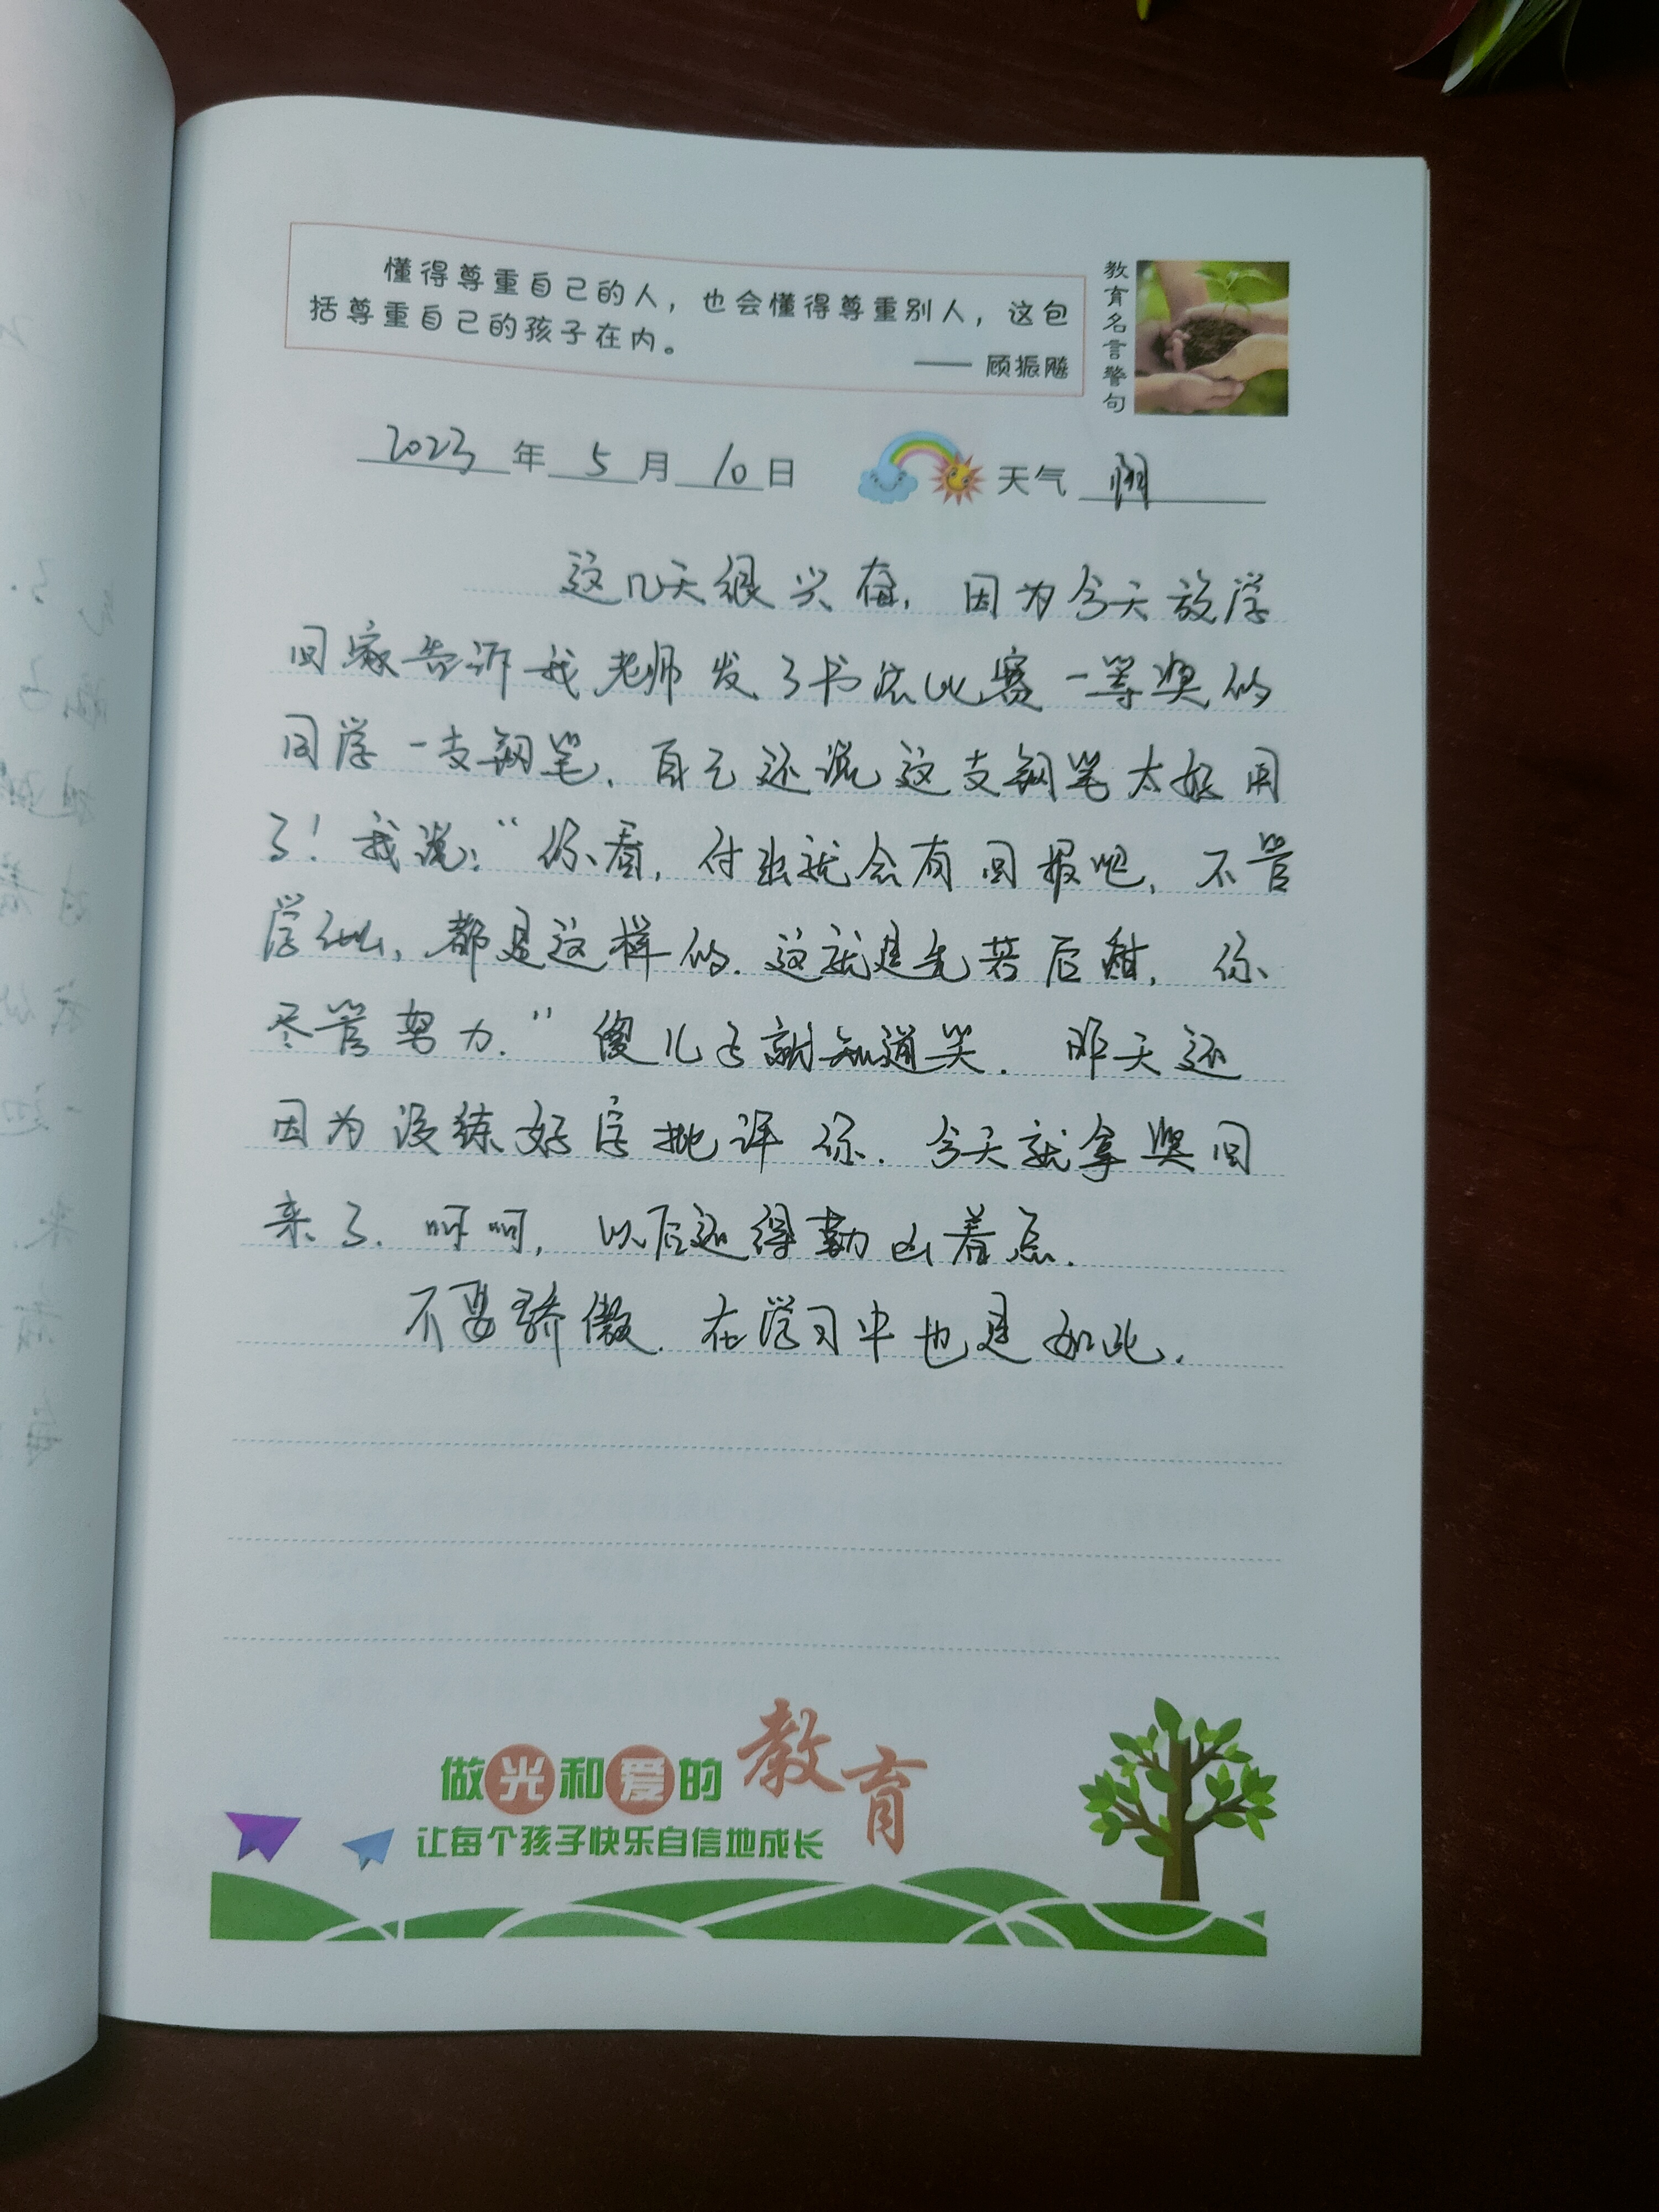 懂得尊重自己的人，也会懂得尊重别人，这包
括尊重自己的孩子在内。
—— 顾振飚
教育名言警句
2023年5月10日
天气 阴
这几天很兴奋，因为今天放学
回家告诉我老师发了书法比赛一等奖的
同学一支钢笔，自己还说这支钢笔太好用
了！我说：“你看，付出就会有回报吧，不管
学啥，都是这样的．这就是先苦后甜，你
尽管努力．”傻儿子就知道笑．昨天还
因为没练好字批评你．今天就拿奖回
来了．呵呵，以后还得勤凶着点．
不要骄傲．在学习中也是如此．
做光和爱的教育
让每个孩子快乐自信地成长